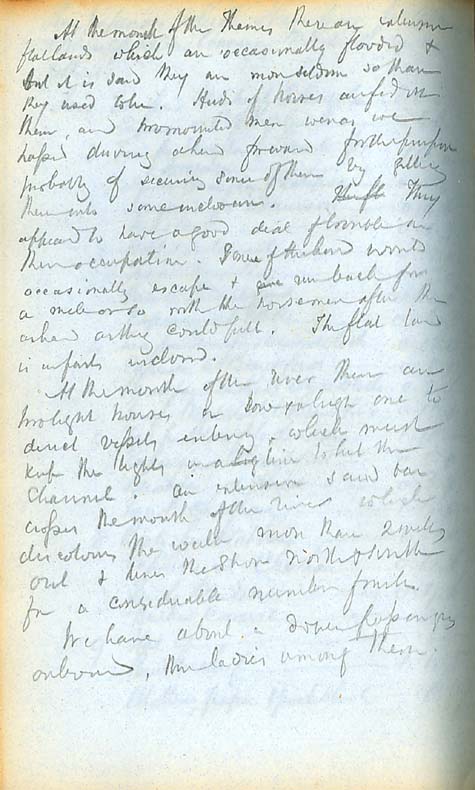 At the mouth of the Thames there are extensive
flatlands which are occasionally flooded &
but it is said they are more seldom so than
they used to be. Herds of horses are fed on
them, and two mounted men were as we
passed driving ahead forward for the purpose
probably of securing some of them by getting
them into some inclosure. They
appeared to have a good deal of trouble in
their occupation. Some of the herd would
occasionally escape & run back for
a mile or so with the horsemen after them
ahead as they could pull. The flat land
is in parts inclosed.
At the mouth of the river there are
two light houses a low & a high one to
direct vessels entering, which must
keep the lights in a line to hit the
Channel. An extensive sand bar
crosses the mouth of the river which
discolours the water more than 2 miles
out & lines the shore North & South
for a considerable number of miles.
We have about a dozen passengers
onboard, three ladies among them.